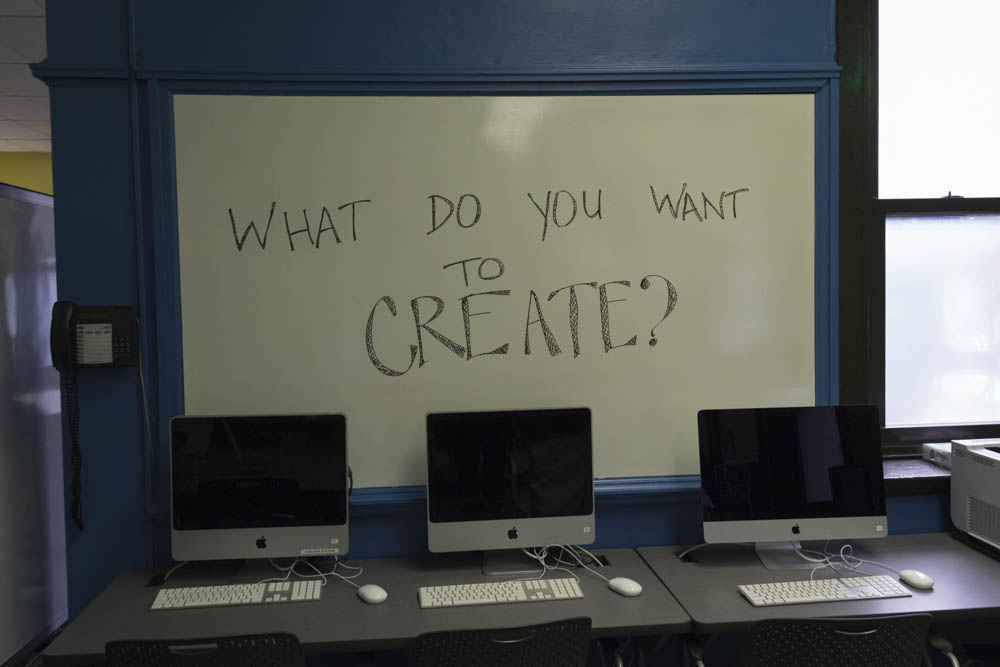 WHAT DO YOU WANT
TO
CREATE?